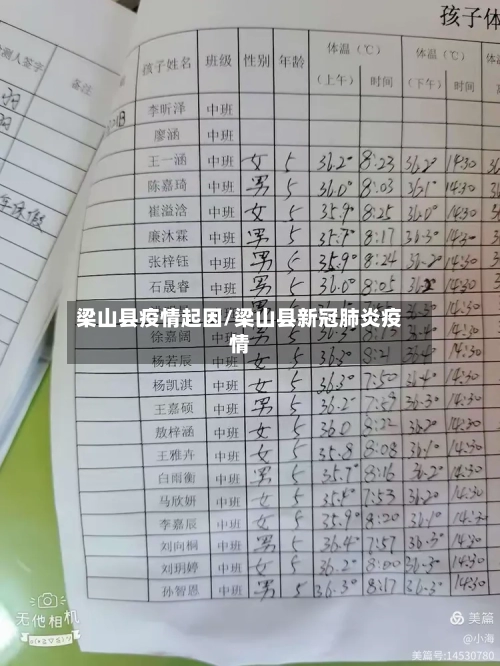 孩子体
检测人签字 备注
孩子姓名 班级 性别 年龄 体温（℃） 体温（℃）
（上午） 时间 （下午） 时间
李昕泽 中班
廖涵 中班
王一涵 中班 女 5 36.2° 8:23 36.2° 14:30
陈嘉琦 中班 男 5 36.0° 8:03 36.1° 14:30
崔溢浛 中班 女 5 35.9° 8:25 36.0° 14:30
廉沐霖 中班 男 5 35.7° 8:17 36.3° 14:30
张梓钰 中班 男 5 35.9° 8:24 36.2° 14:30
石晟睿 中班 男 5 36.0° 8:05 36.2 14:30
梁山县疫情起因/梁山县新冠肺炎疫
情
徐嘉阔
杨若辰 中班 女 5 36.3° 8:21 36.4° 14:30
杨凯淇 中班 女 5 36.3° 7:50 36.4° 14:30
王嘉硕 中班 男 5 36.2° 7:59 36.3° 14:30
敖梓涵 中班 女 5 36.0 8:22 36.2° 14:30
王雅卉 中班 女 5 35.8 8:08 36.1° 14:30
白雨衡 中班 男 5 35.7° 8:16 36.2° 14:30
马欣妍 中班 女 5 35.4° 7:53 36.2° 14:30
李嘉辰 中班 女 5 35.9° 8:20 36.1° 14:30
刘向桐 中班 男 5 36.4° 7:57 36.3° 14:30
刘玥婷 中班 女 5 36.2° 8:00 36.3° 14:30
孙智恩 中班 男 5 36.3° 8:17 36.3° 14:30
无他相机
美篇
@小海
美篇号:14530780